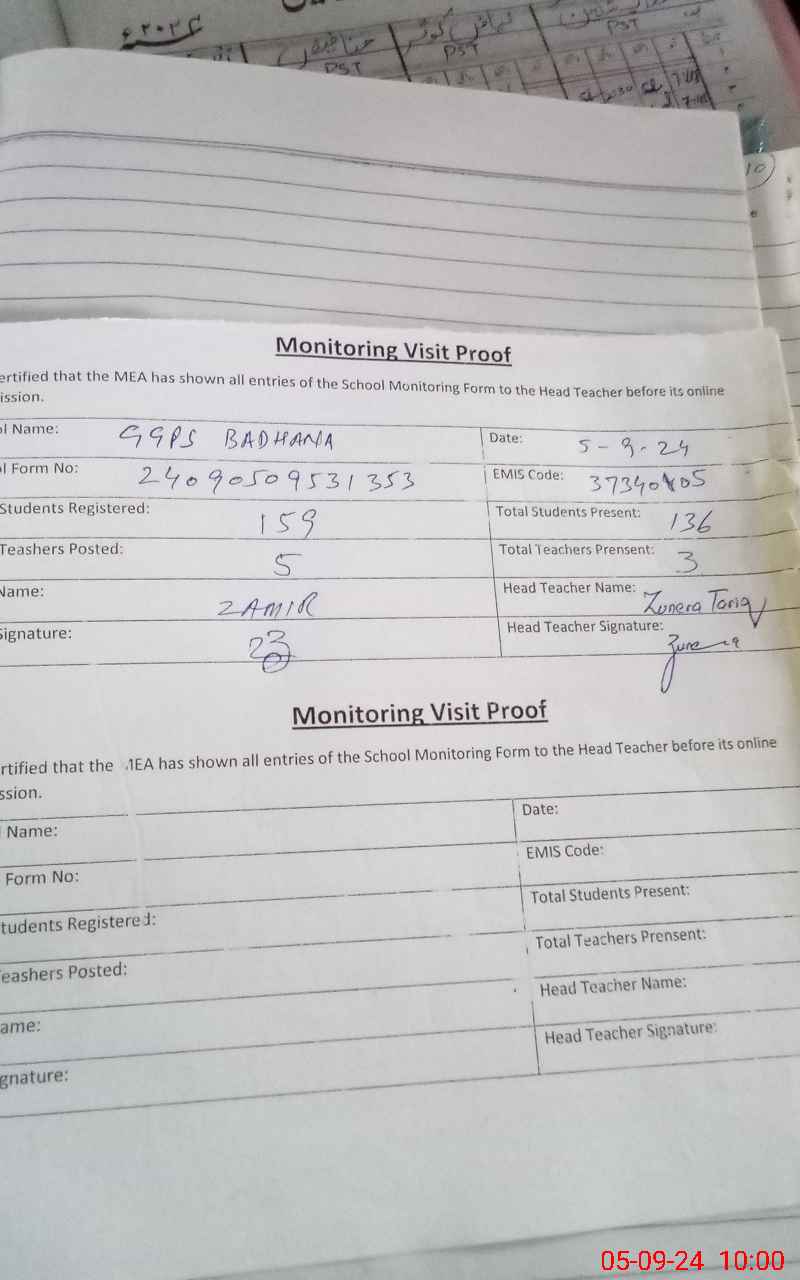 ۲۰۲۴ء
PST
PST
PST
10
Monitoring Visit Proof
ertified that the MEA has shown all entries of the School Monitoring Form to the Head Teacher before its online
ission.
ol Name: GGPS BADHANA Date: 5-9-24
ol Form No: 24090509531353 EMIS Code:
Students Registered: 159 Total Students Present: 136
Teashers Posted: 5 Total Teachers Prensent: 3
Name: ZAMIR Head Teacher Name: Zunera Tariq
Signature: Head Teacher Signature:
Monitoring Visit Proof
rtified that the MEA has shown all entries of the School Monitoring Form to the Head Teacher before its online
ssion.
Name: Date:
Form No: EMIS Code:
tudents Registered: Total Students Present:
eashers Posted: Total Teachers Prensent:
ame: Head Teacher Name:
gnature: Head Teacher Signature:
05-09-24 10:00